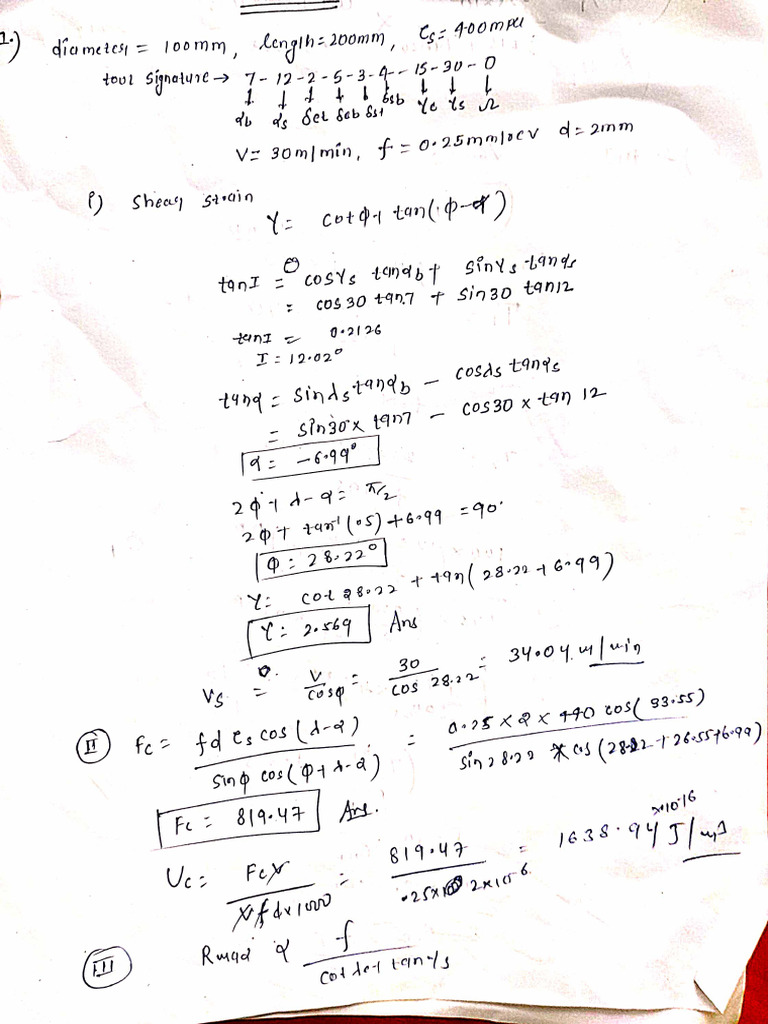 1.) diameter = 100mm, length = 200mm, τs = 400 mpa
tool signature → 7 - 12 - 2 - 5 - 3 - 4 - 15 - 30 - 0
αb αs δel δeb δst δsb γe γs r
V = 30 m/min, f = 0.25mm/rev d = 2mm
i) Shear strain
γ = cotφ + tan(φ-α)
tanI = cosγs tanαb + sinγs tanαs
= cos 30 tan7 + sin30 tan12
tanI = 0.2126
I = 12.02°
tanα = sinλs tanαb - cosλs tanαs
= sin30 × tan7 - cos30 × tan 12
α = -6.99°
2φ + λ - α = π/2
2φ + tan⁻¹(.5) + 6.99 = 90°
φ = 28.22°
γ = cot 28.22 + tan(28.22 + 6.99)
γ = 2.569 Ans
Vs = V/cosφ = 30/cos 28.22 = 34.04 m/min
II Fc = fd τs cos(λ-α) / sinφ cos(φ+λ-α) = 0.25 × 2 × 440 cos(33.55) / sin 28.22 × cos(28.22 + 26.55 + 6.99)
Fc = 819.47 Ans.
Uc = Fc×V / V×fd×1000 = 819.47 / .25×2×10⁻⁶ = 1638.94 J/m3
III Rmax α f / cot δe + tanγs